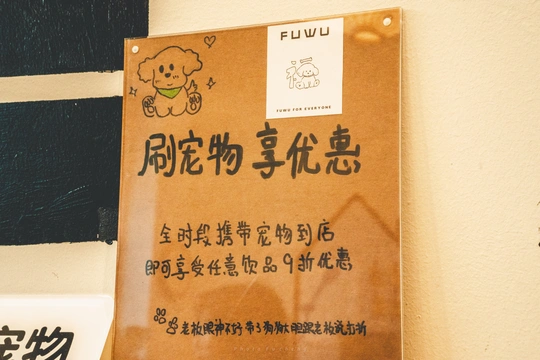 FUWU
FUWU FOR EVERYONE
刷宠物 享优惠
全时段携带宠物到店
即可享受任意饮品9折优惠
老板眼神不好 带了狗狗大胆跟老板说打折
宠物